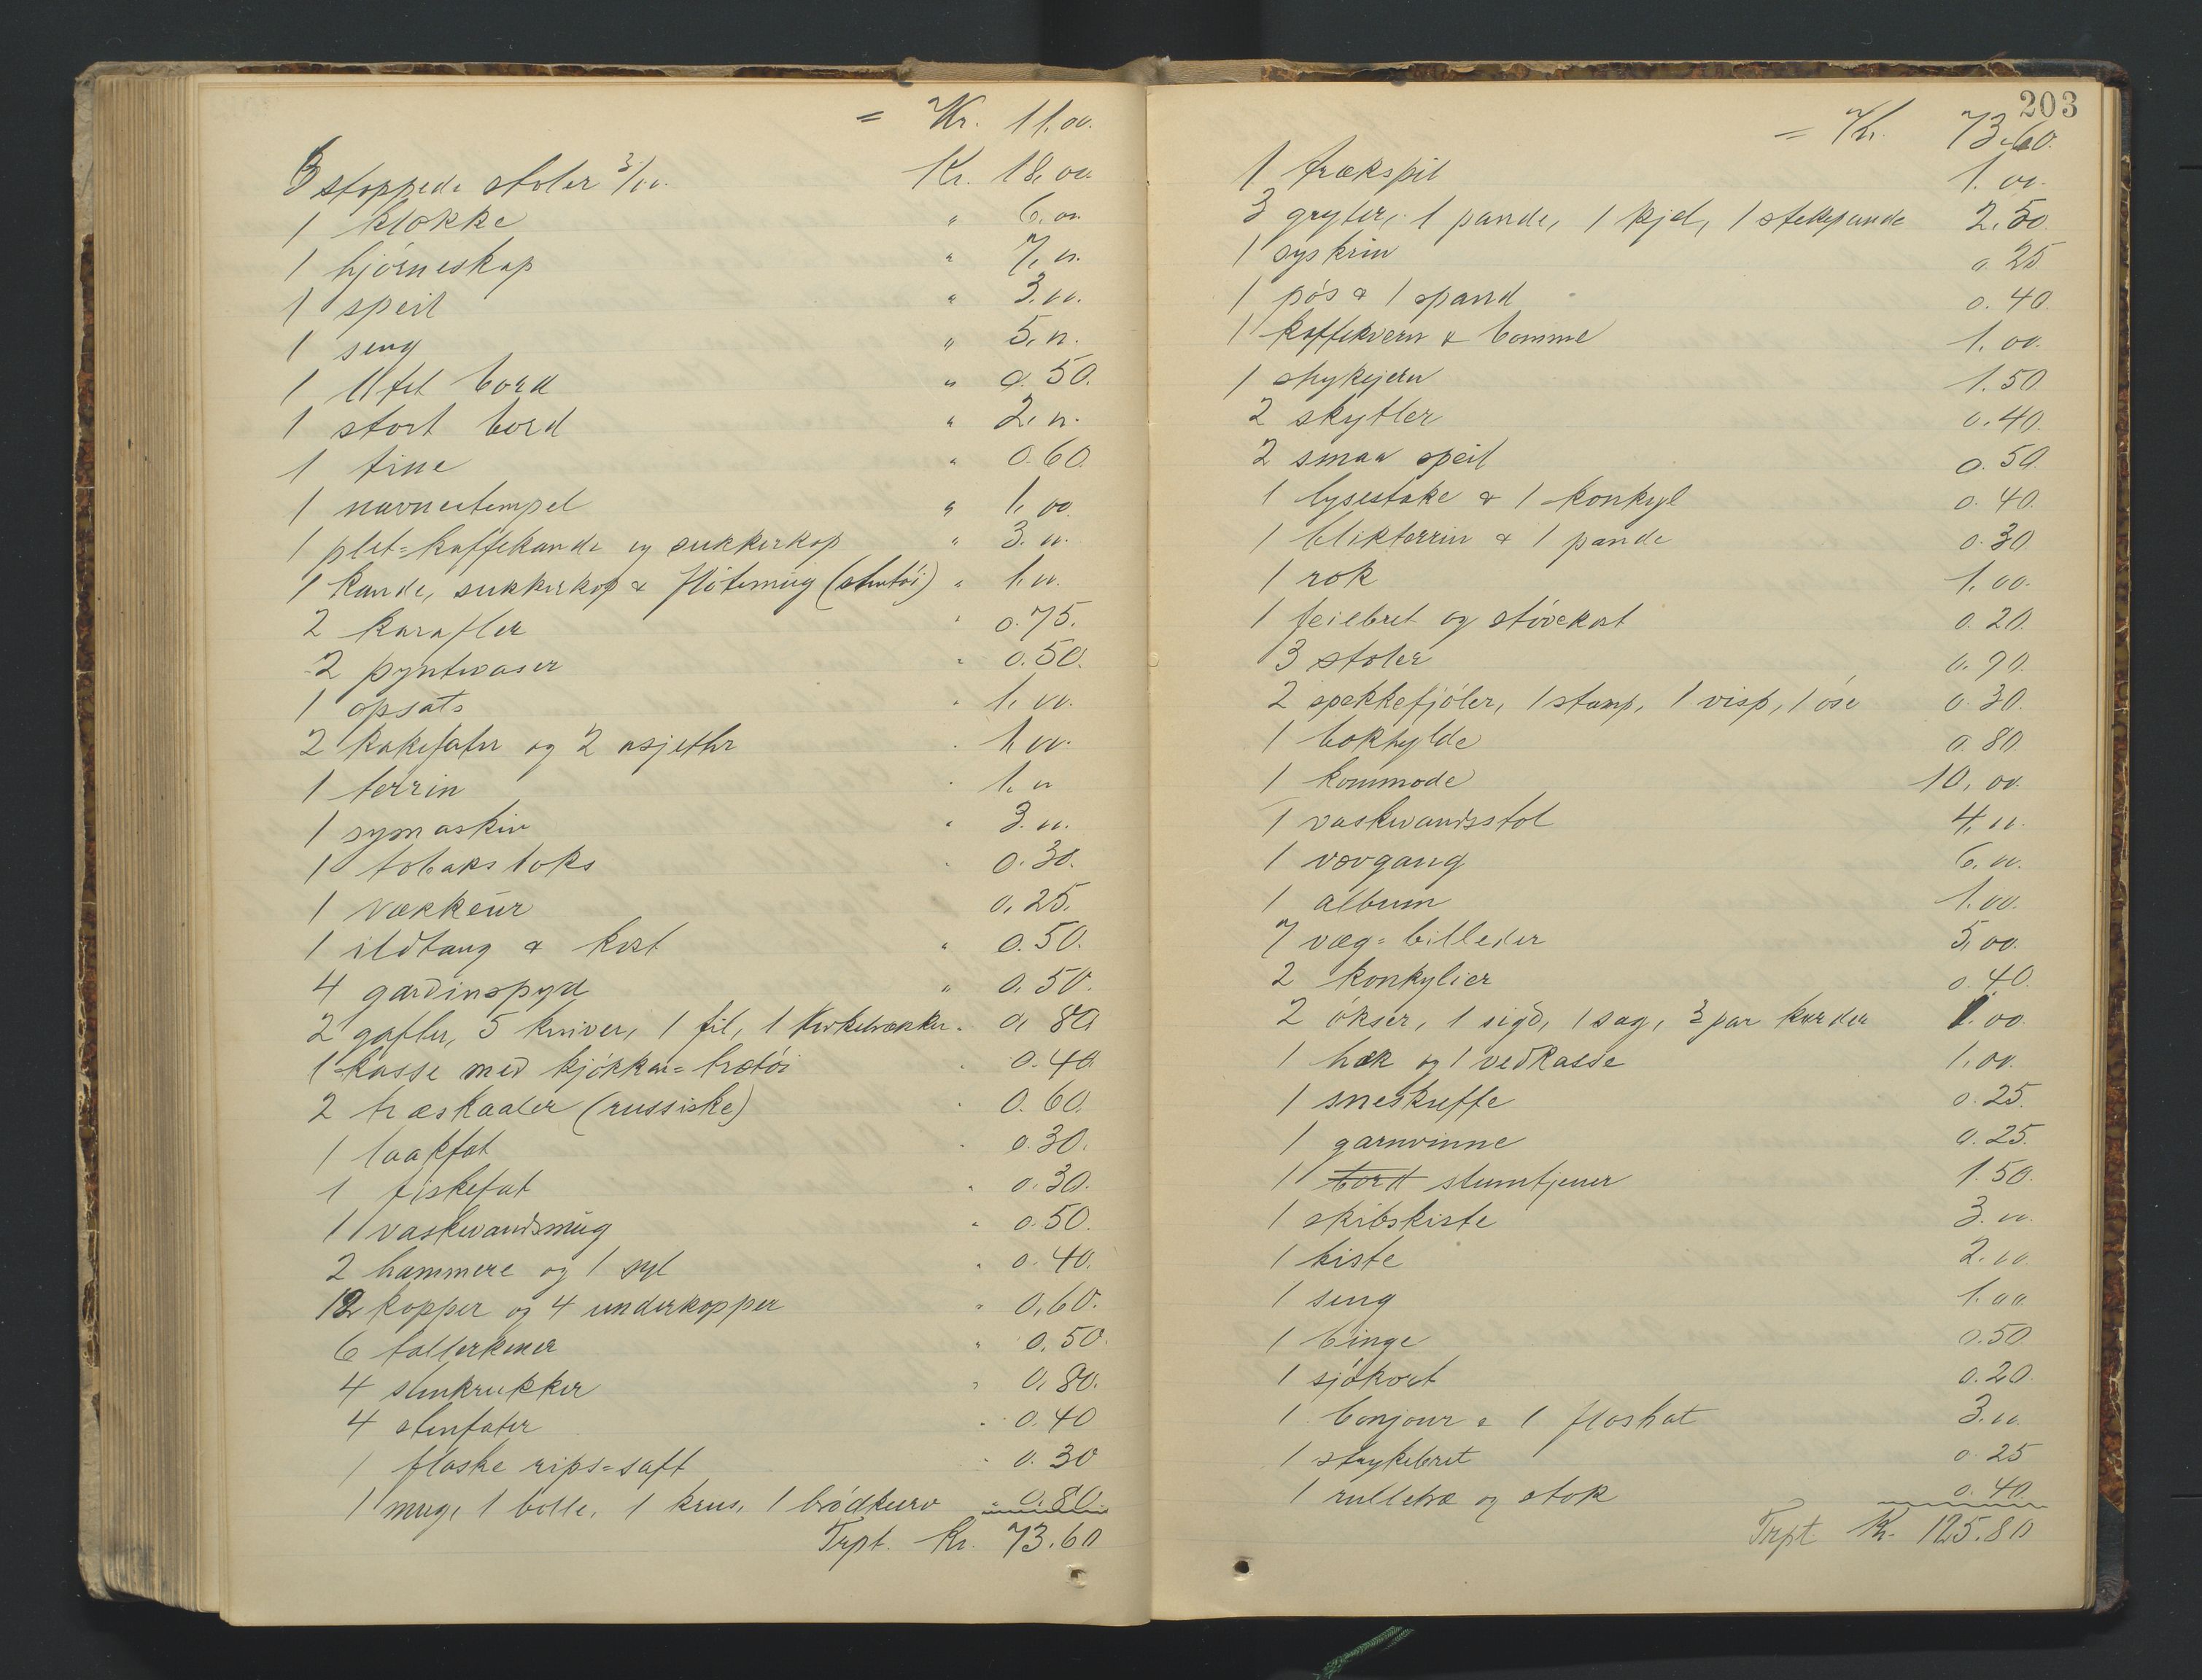 = Kr. 11.00.
3 stoppede stoler 3/00. Kr. 18.00
1 klokke " 6.00
1 hjörneskap " 7.00.
1 speil " 3.00.
1 seng " 5.00.
1 litet bord " 0.50.
1 stort bord " 2.00.
1 tine " 0.60.
1 navnestempel " 1.00.
1 plet=kaffekande og sukkerkop " 3.00.
1 kande, sukkerkop & flötemug (stentöi) " 1.00.
2 karafler " 0.75.
2 pyntevaser " 0.50.
1 opsats " 1.00.
2 kakefater og 2 asjetter " 1.00.
1 terrin " 1.00
1 symaskin " 3.00.
1 tobaksboks " 0.30.
1 vækkeur 0.25.
1 ildtang & kost " 0.50.
4 gardinspyd " 0.50.
2 gafler, 5 kniver, 1 fil, 1 korketrækker " 0.80
1 kasse med kjökken=trætöi " 0.40
2 træskaaler (russiske) " 0.60.
1 laakfat " 0.30.
1 fiskefat " 0.30.
1 vaskevandsmug " 0.50.
2 hammere og 1 syl " 0.40.
12 kopper og 4 underkopper " 0.60.
6 tallerkener " 0.50.
4 stenkrukker " 0.80.
4 stenfater " 0.40
1 flaske rips=saft " 0.30
1 mug, 1 bolle, 1 krus, 1 brödkurv " 0.80.
Trpt. Kr. 73.60
203
= Kr. 73.60.
1 trækspil 1.00.
3 gryter, 1 pande, 1 kjel, 1 stekepande 2.50
1 syskrin 0.25
1 pös & 1 spand 0.40.
1 kaffekvern & bomme 1.00.
1 strykejern 1.50
2 skytler 0.40.
2 smaa speil 0.50.
1 lysestake & 1 konkyl 0.40.
1 blikterrin & 1 pande 0.30
1 rok 1.00.
1 feiebret og stövekost 0.20.
3 stoler 0.90.
2 spekkefjöler, 1 stamp, 1 visp, 1 öse 0.30.
1 bokhylde 0.80.
1 kommode 10.00.
1 vaskevandsstol 4.00.
1 vævgang 6.00.
1 album 1.00.
7 væg=billeder 5.00.
2 konkylier 0.40.
2 ökser, 1 sigd, 1 sag, 3 par karder 1.00
1 hæk og 1 vedkasse 1.00.
1 sneskuffe 0.25.
1 garnvinne 0.25.
1 bord stumtjener 1.50.
1 skibskiste 3.00.
1 kiste 2.00
1 seng 1.00.
1 binge 0.50
1 sjökort 0.20.
1 bonjour & 1 floshat 3.00
1 strykebret 0.25
1 rulletræ og stok 0.40.
Trpt Kr. 125.80